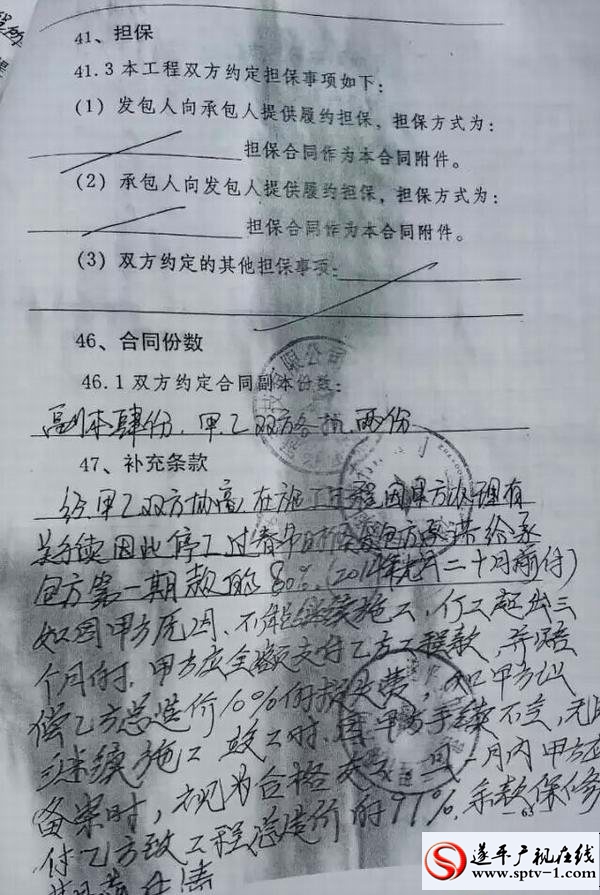 41、担保
41.3 本工程双方约定担保事项如下：
(1) 发包人向承包人提供履约担保，担保方式为：
担保合同作为本合同附件。
(2) 承包人向发包人提供履约担保，担保方式为：
担保合同作为本合同附件。
(3) 双方约定的其他担保事项：
46、合同份数
46.1 双方约定合同副本份数：
副本肆份，甲乙双方各执两份
47、补充条款
经甲乙双方协商，在施工过程因甲方办理有
关手续因此停工过春年时 发包方承诺给承
包方第一期款的80%.(2014年元月二十日前付)
如因甲方原因、不能继续施工，停工超出三
个月时，甲方应全额支付乙方工程款，并赔
偿乙方总造价10%的损失费，如甲方
继续施工 竣工时，因甲方手续不全，无
备案时，视为合格 一月内甲方应
付乙方致工程总造价的97%，余款保修
63
有限公司
遂平广视在线
www.sptv-1.com